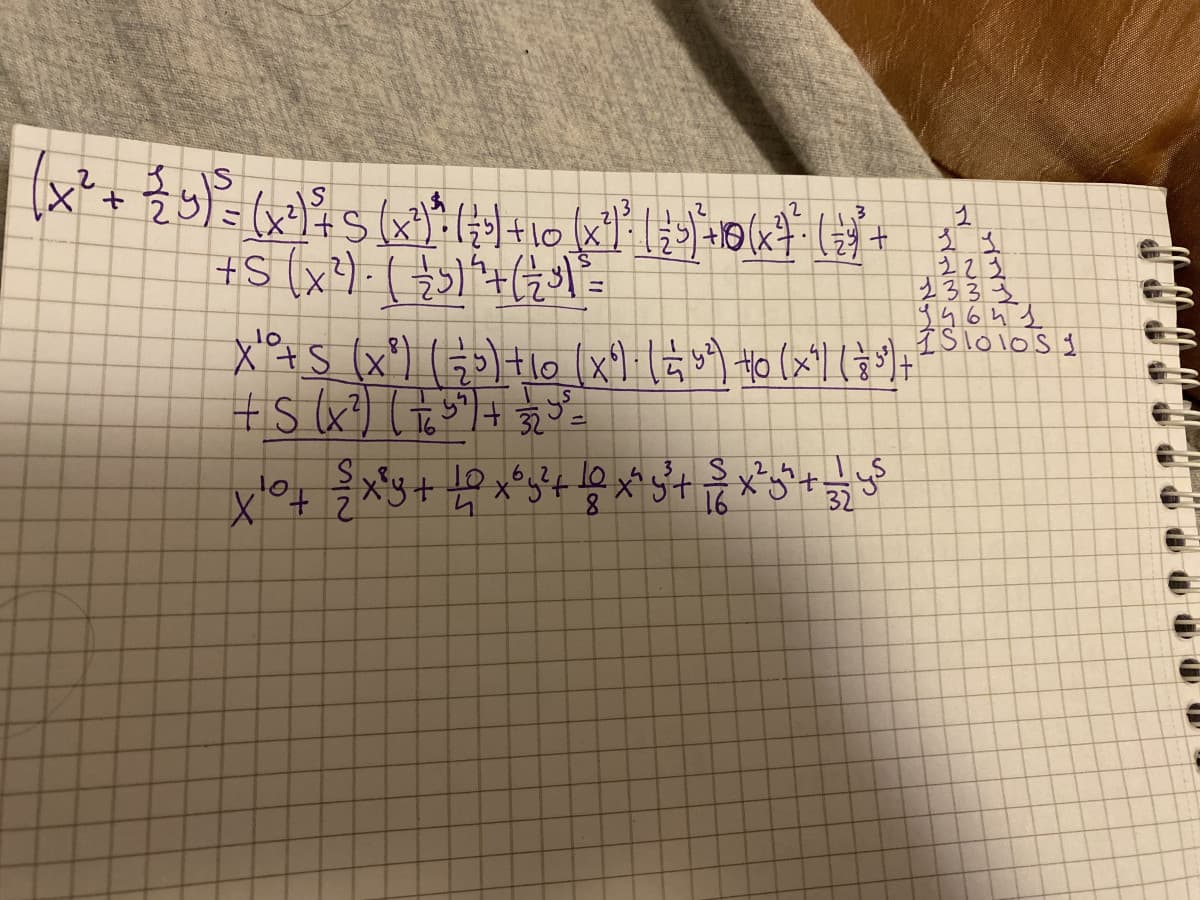 (x² + 1/2 y)⁵ = (x²)⁵ + 5 (x²)⁴ · (1/2 y) + 10 (x²)³ · (1/2 y)² + 10 (x²)² · (1/2 y)³ +
+ 5 (x²) · (1/2 y)⁴ + (1/2 y)⁵ =
x¹⁰ + 5 (x⁸) (1/2 y) + 10 (x⁶) · (1/4 y²) + 10 (x⁴) (1/8 y³) +
+ 5 (x²) (1/16 y⁴) + 1/32 y⁵ =
x¹⁰ + 5/2 x⁸y + 10/4 x⁶y² + 10/8 x⁴y³ + 5/16 x²y⁴ + 1/32 y⁵
1
1 1
1 2 1
1 3 3 1
1 4 6 4 1
1 5 10 10 5 1